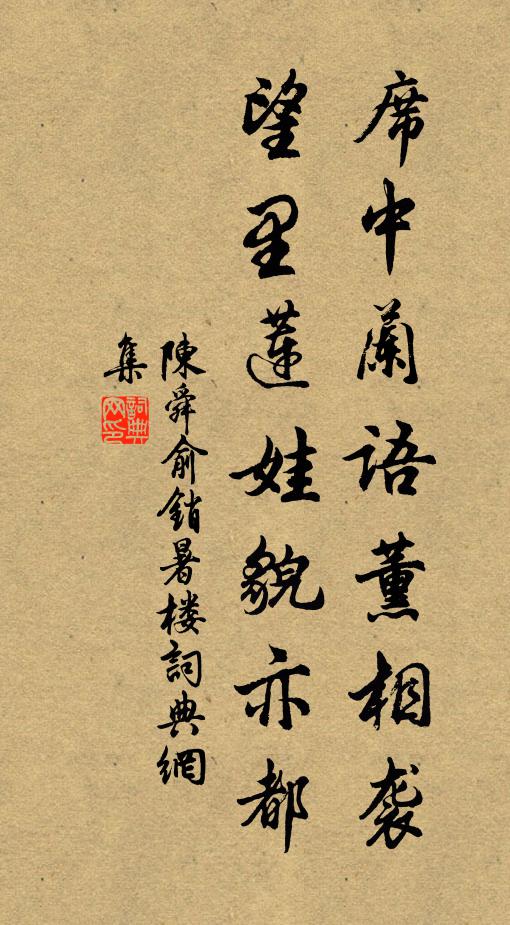 席中蘭語薰相袭
望里蓮娃貌亦都
陳舜俞銷暑楼詞典網
集
詞典网印